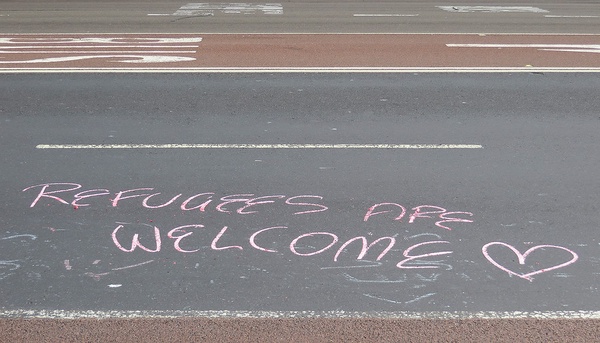 REFUGEES ARE
WELCOME